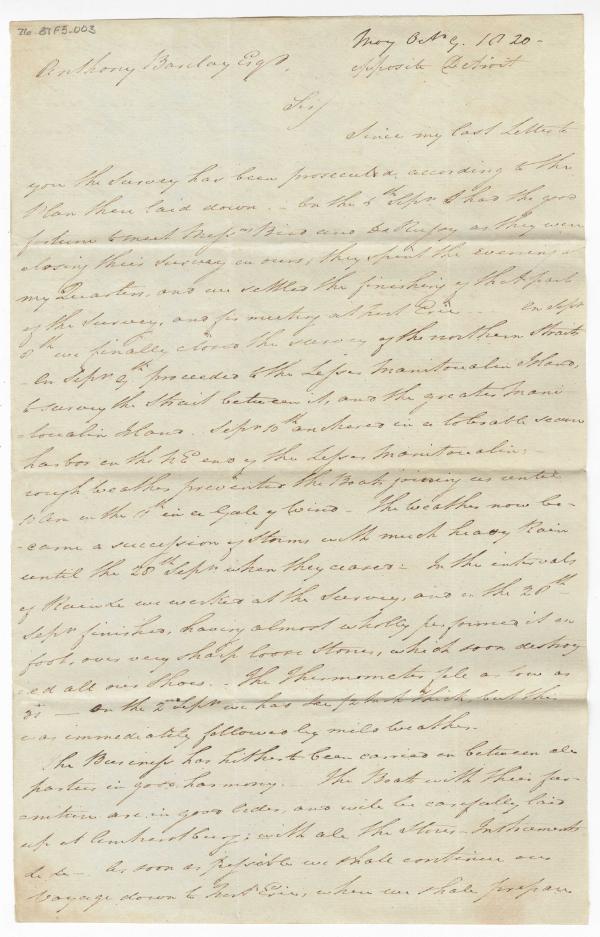 No. 81F5.003
Moy Octr 9. 1820-
Anthony Barclay Esqr. opposite Detroit
Sir/
Since my last Letter to
you the Survey has been prosecuted, according to the
Plan then laid down. - On the 6th Septr I had the good
fortune to meet Messrs Bird and De Russy as they were
closing their Survey on ours, they spent the evening at
my Quarters, and we settled the finishing of that part
of the Survey, and for meeting at Fort Erie - On Septr
8th we finally closed the survey of the northern Straits
On Septr 9th proceeded to the Lesser Manitoualin Island,
to survey the Strait between it, and the greater Mani
=toualin Island. Septr 10th anchored in a tolerable secure
harbor on the NE end of the Lesser Manitoualin;
rough weather prevented the Boats joining us until
10 AM on the 15th in a Gale of Wind - The Weather now be-
-came a succession of Storms with much heavy Rain
until the 28th Septr when they ceased - In the intervals
of Rain &c we worked at the Survey, and on the 26th
Septr finished, having almost wholly performed it on
foot, over very sharp loose Stones, which soon destroy
=ed all our Shoes. - The Thermometer fell as low as
on the 2nd Septr we had Ice thick, but this
was immediately followed by mild weather.
The Business has hitherto been carried on between all
parties in good harmony. - The Boats with their fur-
-niture are in good order, and will be carefully laid
up at Amherstburg; with all the Stores - Instruments
&c &c - As soon as possible we shall continue our
Voyage down to Fort Erie, where we shall prepare